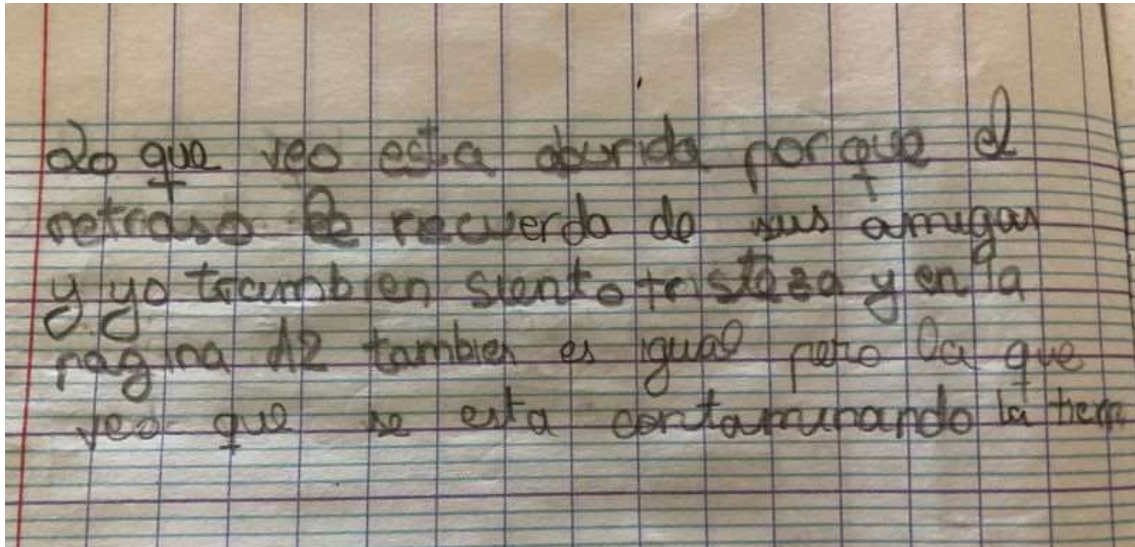 Lo que veo esta aburrida porque el
retraso le recuerda de sus amigas
y yo trambien siento tristeza y en la
pagina 12 tambien es igual pero la que
veo que se esta contaminando la tierra